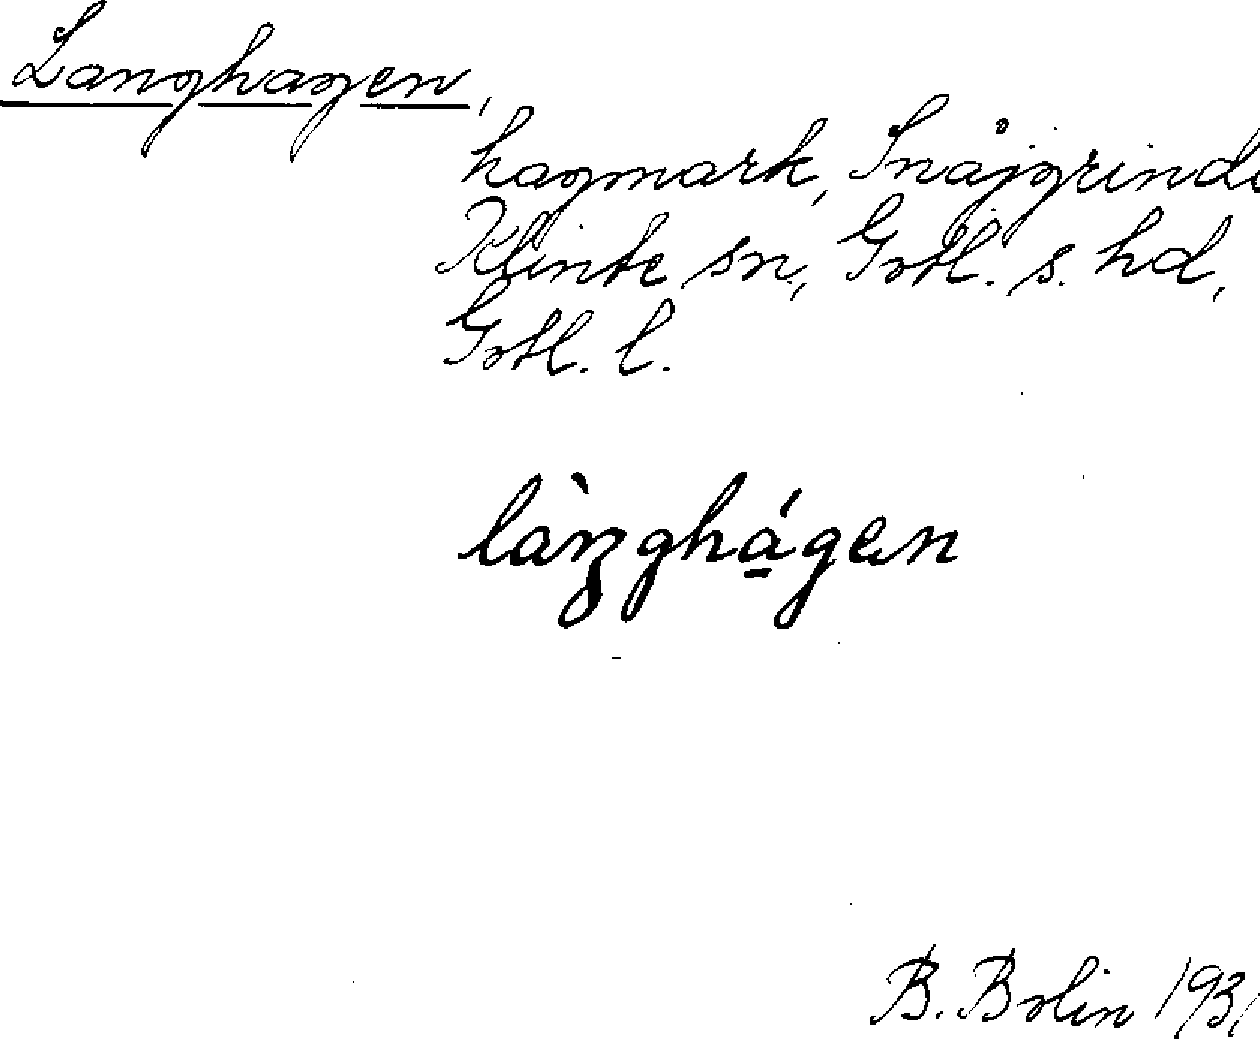 Langhagen,
hagmark, Snäjgrinde
Klinte sn, Gotl. s. hd,
Gotl. l.
làŋghá̱gen
B. Bolin 1931